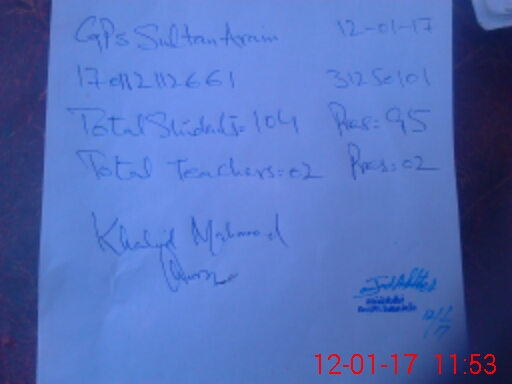 GPS Sultan Arain 12-01-17
31250101
Total Students=104 Pres=95
Total Teachers=02 Pres=02
Khalid Mahmood
12-01-17 11:53